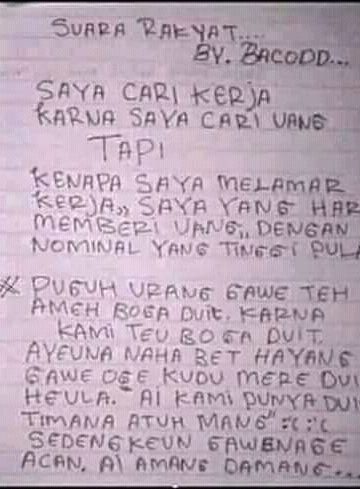 SUARA RAKYAT....
BY. BACODD...
SAYA CARI KERJA
KARNA SAYA CARI UANG
TAPI
KENAPA SAYA MELAMAR
KERJA,, SAYA YANG HAR
MEMBERI UANG,, DENGAN
NOMINAL YANG TINGGI PULA
* PUGUH URANG GAWE TEH
AMEH BOGA DUIT. KARNA
KAMI TEU BOGA DUIT.
AYEUNA NAHA BET HAYANG
GAWE OGE KUDU MERE DUI
HEULA. AI KAMI PUNYA DUI
TIMANA ATUH MANG" :( :'(
SEDENGKEUN GAWENAGE
ACAN. AI AMANG DAMANG...